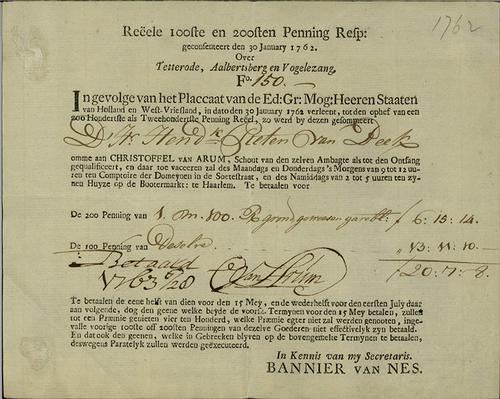 1762
Reëele 100ste en 200sten Penning Resp:
geconsenteert den 30 January 1762.
Over
Tetterode, Aalbertsberg en Vogelezang,
Fo. 150.
In gevolge van het Placcaat van de Ed: Gr: Mog: Heeren Staaten
van Holland en West-Vriesland, in dato den 30 January 1762 verleent, tot den ophef van een
200 Hondertste als Tweehondertste Penning Reeel, zo werd by dezen gesommeert
D'Hr. Hendk van
omme aan CHRISTOFFEL VAN ARUM, Schout van den zelven Ambagte als tot den Ontfang
gequalificeert, en daar toe vaceeren zal des Maandags en Donderdags 's Morgens van 9 tot 12 uu-
ren ten Comptoire der Domeynen in de Soetestraat, en des Namiddags van 2 tot 5 uuren ten zy-
nen Huyze op de Bootermarkt: te Haarlem. Te betaalen voor
De 200 Penning van 1 m. 800. R ƒ 6: 15: 14.
De 100 Penning van Deselve „ 13: 11: 10.
Betaald ƒ 20: 7: 8.
1763 Van Arum
Te betaalen de eene helft van dien voor den 15 Mey, en de wederhelft voor den eersten July daar
aan volgende, dog den geene welke beyde de voorsz. Termynen voor den 15 Mey betaald, zullen
tot een Præmie genieten vier ten Honderd, welke Præmie egter niet zal werden genooten, inge-
valle voorige 100ste off 200sten Penningen van dezelve Goederen niet effectivelyk zyn betaald.
En dat ook den geenen, welke in Gebreeken blyven op de bovengemelte Termynen te betaalen,
deswegens Paratelyk zullen werden geëxecuteerd.
In Kennis van my Secretaris.
BANNIER VAN NES.